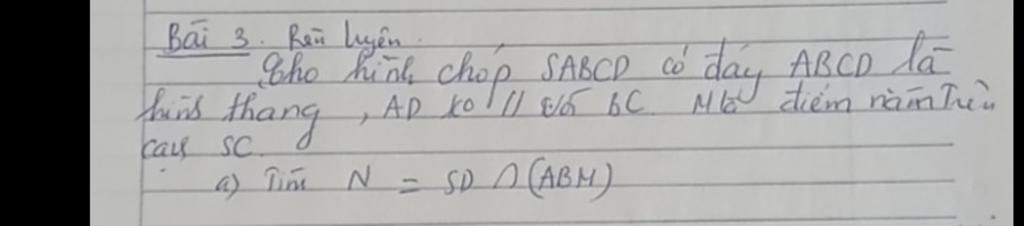 Bài 3. Rèn luyện.
Cho hình chóp SABCD có đáy ABCD là
hình thang, AD ko // với BC. M là điểm nằm trên
cạnh SC.
a) Tìm N = SD ∩ (ABM)